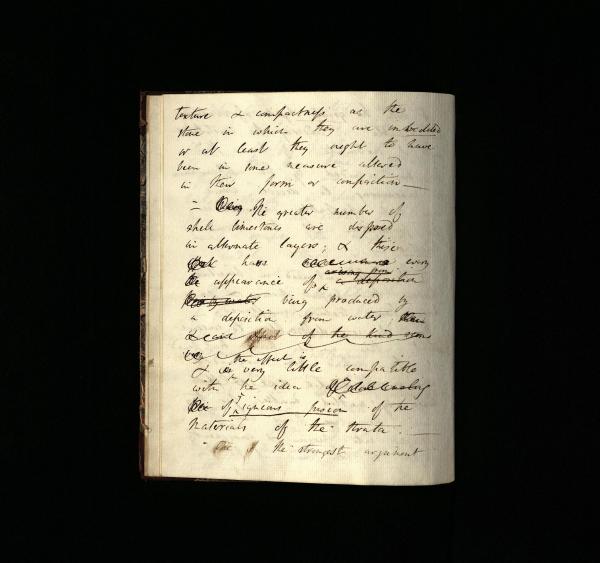 texture & compactness as the
stone in which they are imbedded
or at least they ought to have
been in some measure altered
in their form or composition —
= The greater number of
shell limestones are disposed
in alternate layers; & these
have every
arising from
appearance of a deposition
by water being produced by
a deposition from water
& effect of the kind seem
the effect is
& very little compatible
with the idea of
of igneous fusion of the
Materials of the strata. —
One of the strongest argument